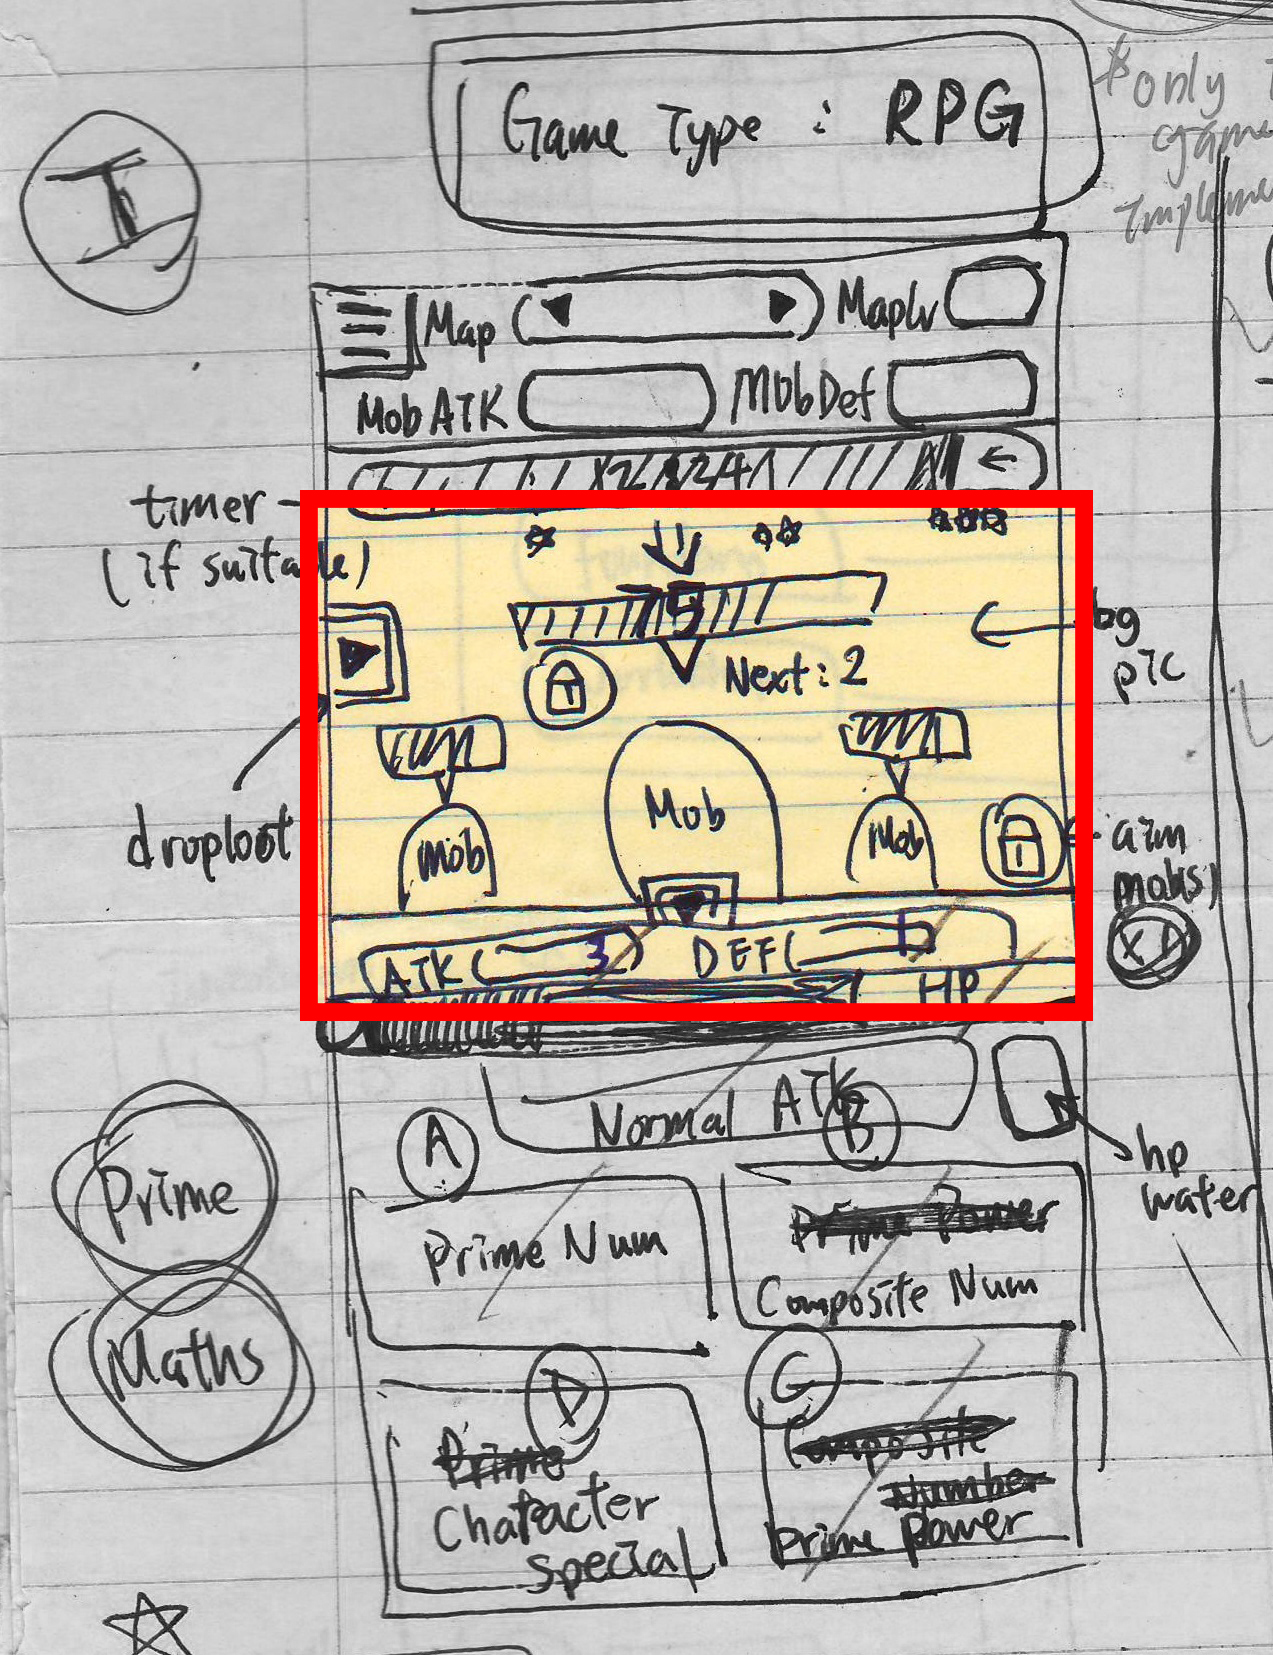 I
Game Type : RPG
*only
game
Impleme
Map
Maplv
Mob ATK
Mob Def
timer
(if suitable)
5
Next: 2
bg
pic
droploot
Mob
Mob
Mob
aim
mobs)
ATK( 3 )
DEF( 1
HP
Normal ATK
hp
water
A
B
Prime Num
Prime Power
Composite Num
Prime
Maths
D
C
Prime
Character
special
Composite
Number
Prime Power